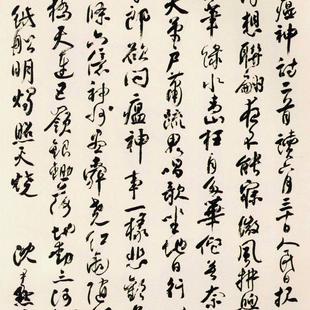 瘟神詩二首讀六月三十日人民日报
浮想聯翩夜不能寐微風拂煦
筆綠水青山枉自多華佗無奈
矢萬戶蕭疏鬼唱歌坐地日行
郎欲問瘟神事一樣悲歡
條六億神州盡舜堯紅雨隨
橋天連五嶺銀鋤落地動三河
紙船明燭照天燒 沈尹默